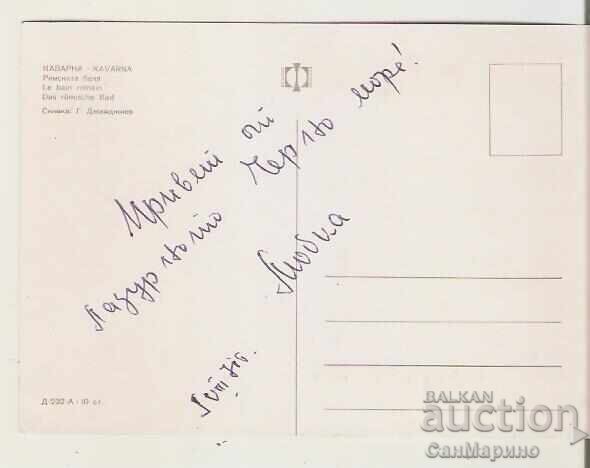 КАВАРНА - KAVARNA
Римската баня
Le bain romain
Das römische Bad
Снимка: Г.
Привет от
лазурното Черно море!
Любка
Д-232-А · 10 ст.
BALKAN
auction
СанМарино